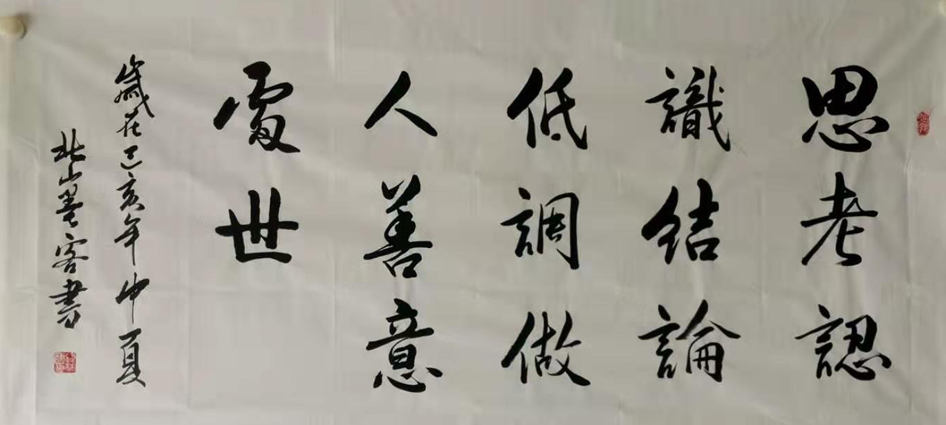 思考認
識結論
低調做
人善意
處世
歲在己亥年中夏
北山墨客書